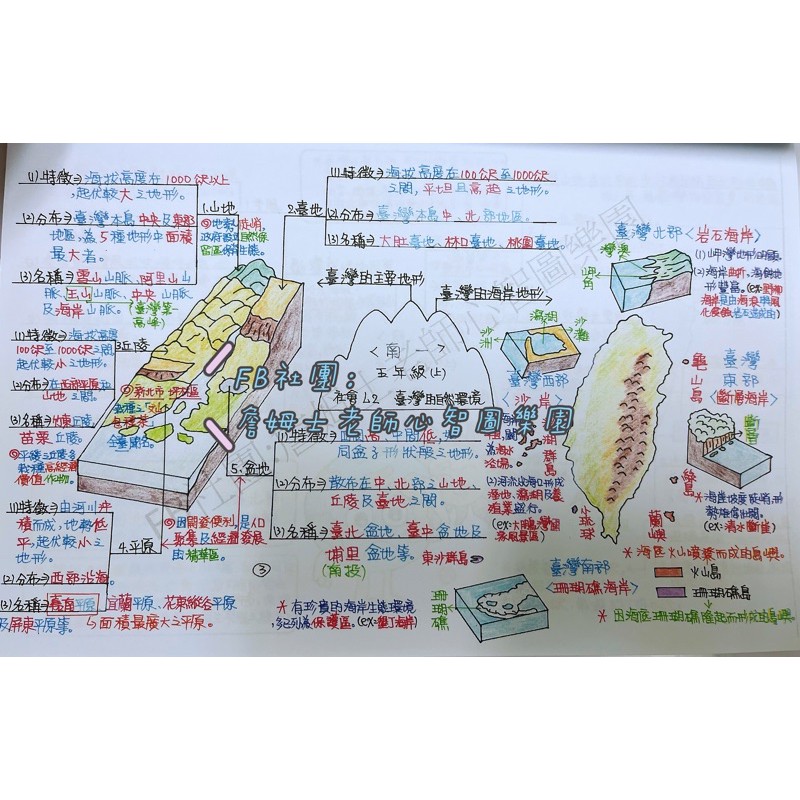 1.山地
(1)特徵⇒海拔高度在1000公尺以上
,起伏較大之地形。
(2)分布⇒臺灣本島中央及東部
地區,為5種地形中面積
最大者。
(3)名稱⇒雪山山脈、阿里山山
脈、玉山山脈、中央山脈
及海岸山脈。(臺灣第一
高峰)
2.臺地
(1)特徵⇒海拔高度在100公尺至1000公尺
之間,平坦且高起之地形。
(2)分布⇒臺灣本島中、北部地區。
(3)名稱⇒大肚臺地、林口臺地、桃園臺地。
3.丘陵
(1)特徵⇒海拔高度
100公尺至1000公尺之間
,起伏較小之地形。
(2)分布⇒在西部平原和
山地之間。
(3)名稱⇒竹東丘陵、
苗栗丘陵。
4.平原
(1)特徵⇒由河川沖
積而成,地勢低
平,起伏較小之
地形。
(2)分布⇒西部沿海。
(3)名稱⇒嘉南平原、宜蘭平原、花東縱谷平原
及屏東平原等。
↳面積最廣大之平原。
5.盆地
(1)特徵⇒四周高,中間低,如
同盆子形狀般之地形。
(2)分布⇒散布在中、北部之山地、
丘陵及臺地之間。
(3)名稱⇒臺北盆地、臺中盆地及
埔里盆地等。
(南投)
臺灣的主要地形
臺灣的海岸地形
<南一>
五年級(上)
社會1-2 臺灣的自然環境
FB社團:
詹姆士老師心智圖樂園
臺灣北部<岩石海岸>
灣澳
岬角
沙洲
潟湖
沙灘
臺灣西部
<沙岸>
臺灣
東部
<斷層海岸>
斷層
龜山島
綠島
蘭嶼
小琉球
澎湖群島
東沙群島
*海底火山噴發而成的島嶼。
火山島
珊瑚礁島
*因海底珊瑚礁隆起而形成的島嶼。
臺灣南部
<珊瑚礁海岸>
珊瑚礁
*有珍貴的海岸生態環境
,多已列為保護區。(ex:墾丁海岸)
③